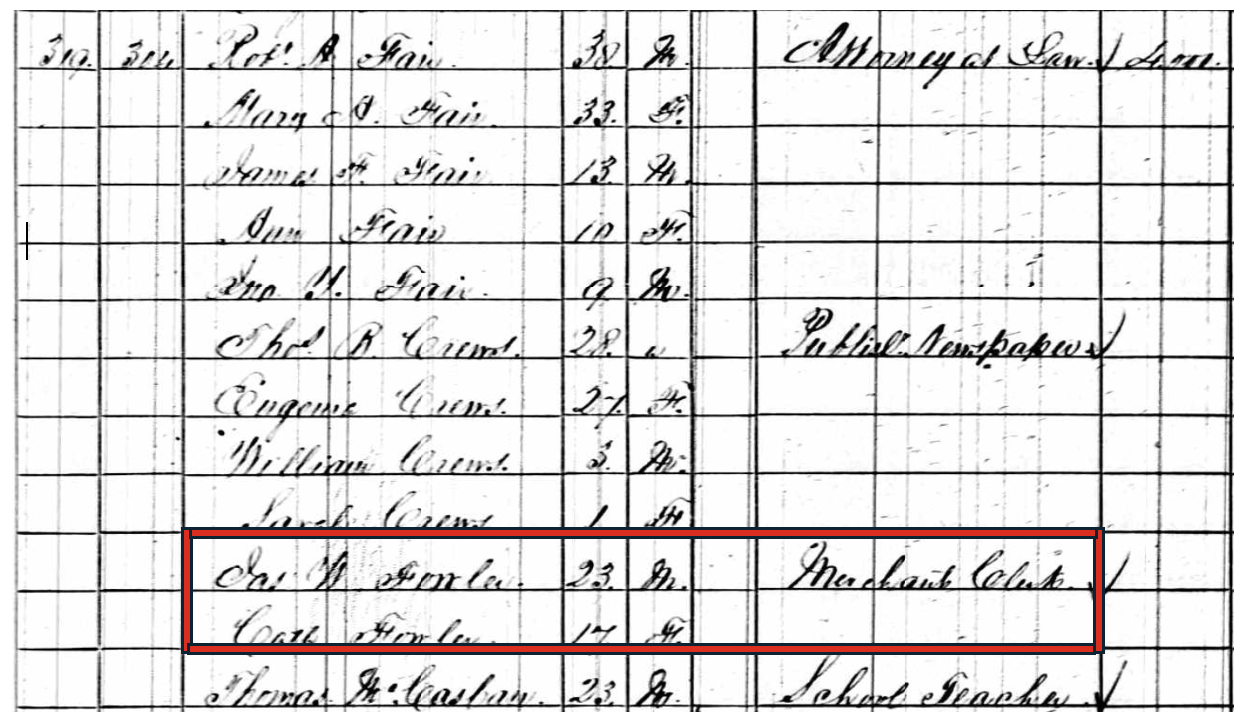 319. Robt A Fair 38 M. Attorney at Law
Mary A. Fair. 33. F.
James F. Fair 13. M.
Ann Fair 10 F.
Jno Y. Fair. 9 M.
Thos R Crews. 28. " Publisr. Newspaper
Eugenia Crews. 27. F.
William Crews. 3. M.
Sarah Crews 1 F
Jas W Fowler. 23. M. Merchants Clerk.
Cath Fowler. 17 F.
Thomas 23. M. School Teacher